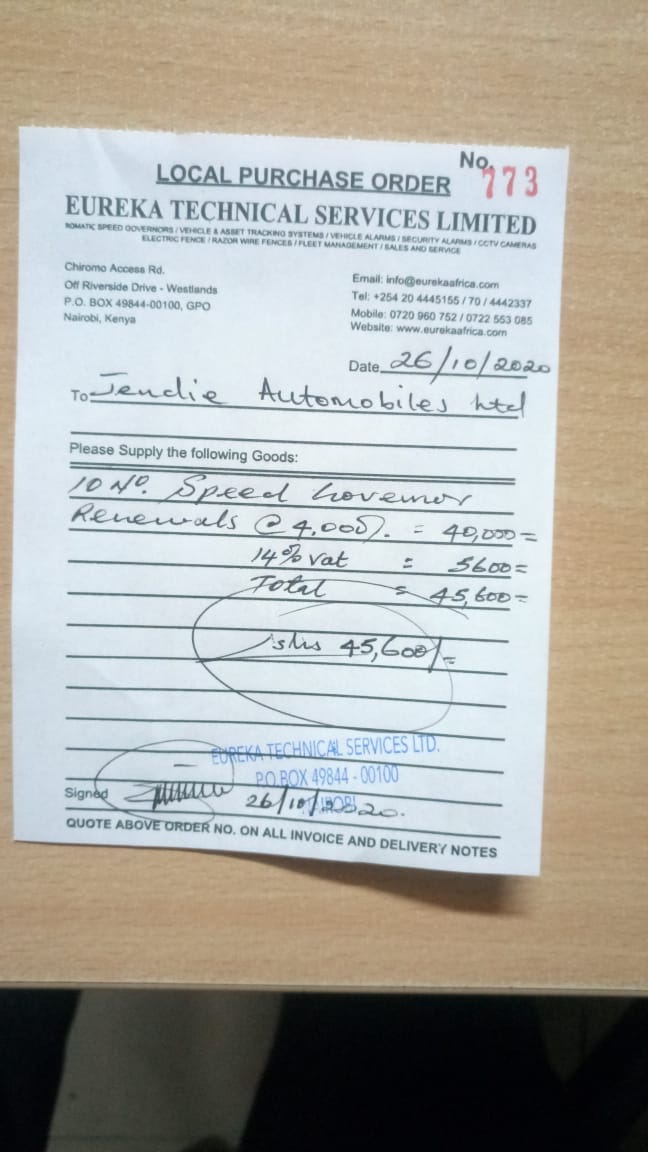 No. 773
LOCAL PURCHASE ORDER
EUREKA TECHNICAL SERVICES LIMITED
ROMATIC SPEED GOVERNORS / VEHICLE & ASSET TRACKING SYSTEMS / VEHICLE ALARMS / SECURITY ALARMS / CCTV CAMERAS
ELECTRIC FENCE / RAZOR WIRE FENCES / FLEET MANAGEMENT / SALES AND SERVICE
Chiromo Access Rd.
Off Riverside Drive - Westlands
P.O. BOX 49844-00100, GPO
Nairobi, Kenya
Email: info@eurekaafrica.com
Tel: +254 20 4445155 / 70 / 4442337
Mobile: 0720 960 752 / 0722 553 085
Website: www.eurekaafrica.com
Date 26/10/2020
To Jendie Automobiles Ltd
Please Supply the following Goods:
10 No. Speed Governor
Renewals @ 4,000/. = 40,000=
14% Vat = 5600=
Total = 45,600=
/shs 45,600/=
EUREKA TECHNICAL SERVICES LTD.
P.O. BOX 49844 - 00100
NAIROBI
Signed 26/10/2020.
QUOTE ABOVE ORDER NO. ON ALL INVOICE AND DELIVERY NOTES